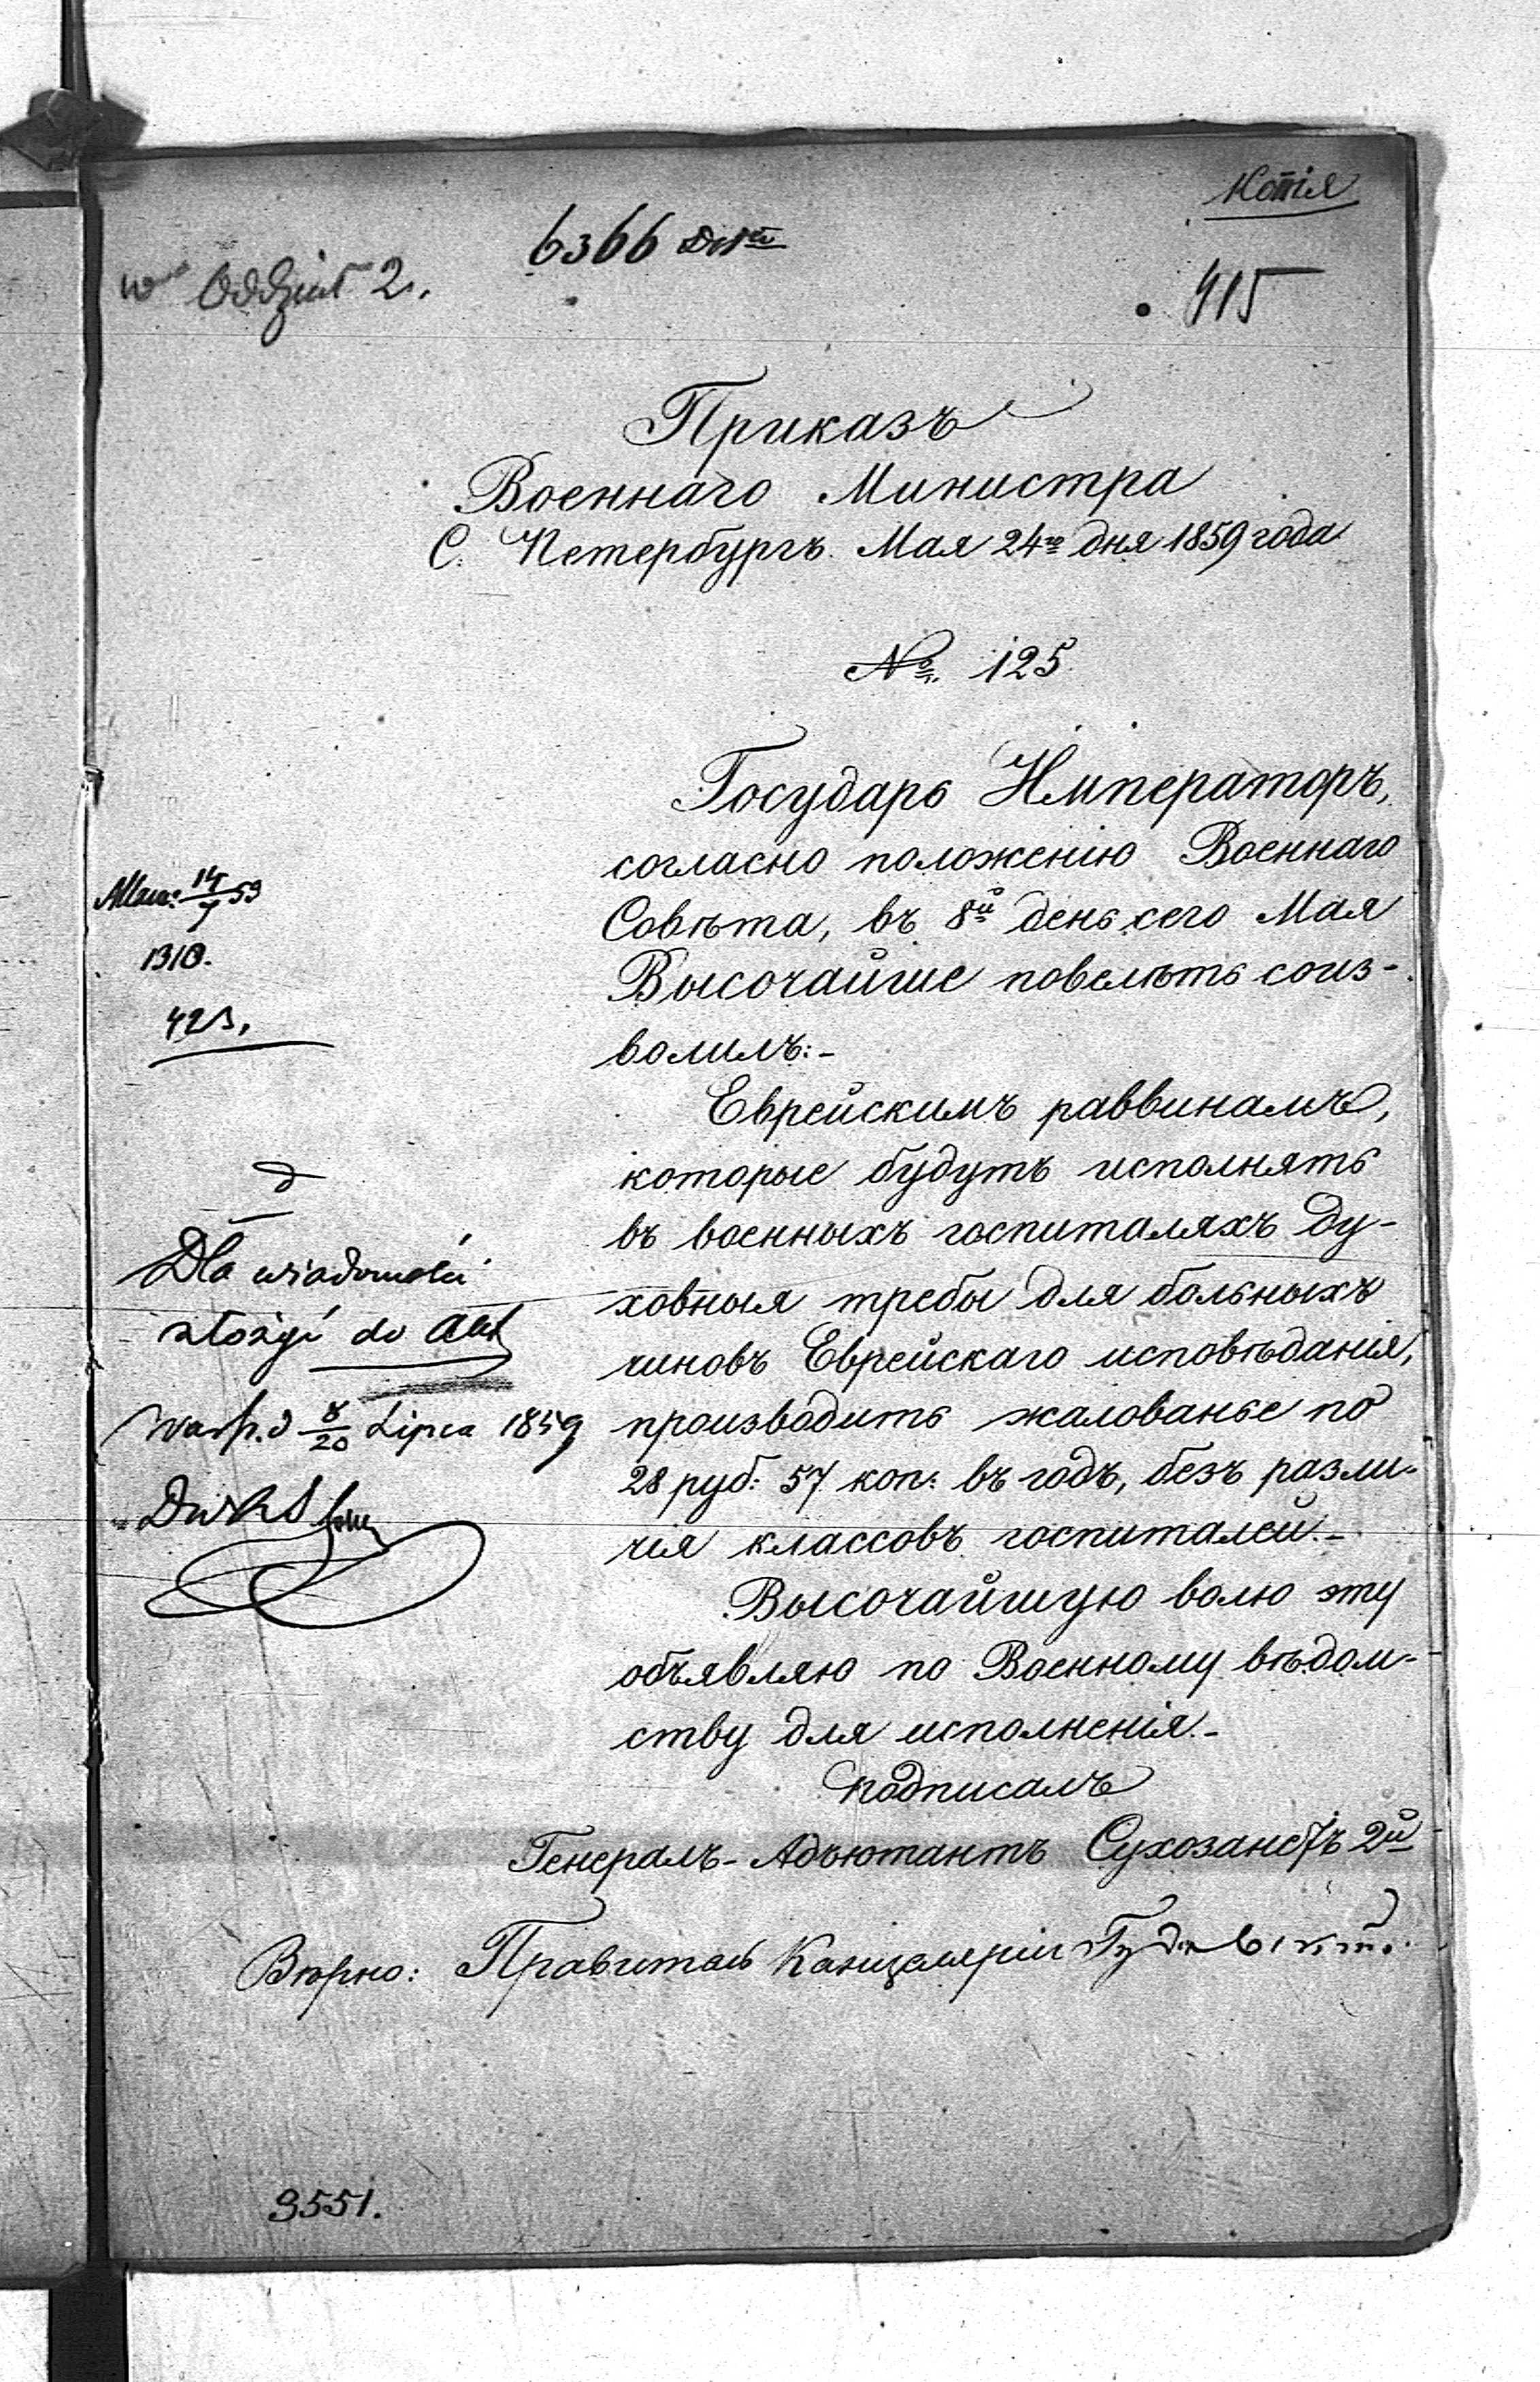 Копія
6366
w Oddział 2.
415
Приказъ
Военнаго Министра
С. Петербургъ. Мая 24го дня 1859 года
№. 125
Государь Императоръ,
согласно положенію Военнаго
Совѣта, въ 8й день сего Мая
Высочайше повелѣть соиз-
волилъ:-
Еврейскимъ раввинамъ,
которые будутъ исполнять
въ военныхъ госпиталяхъ ду-
ховныя требы для больныхъ
чиновъ Еврейскаго исповѣданія,
производить жалованье по
28 руб: 57 коп: въ годъ, безъ разли-
чія классовъ госпиталей.-
Высочайшую волю эту
объявляю по Военному вѣдом-
ству для исполненія.-
подписалъ
Генералъ-Адъютантъ Сухозанетъ 2й
Вѣрно: Правитель Канцеляріи
1310.
423.
Dla wiadomości
złożyć do Akt
Warsz. d 8/20 Lipca 1859
3551.